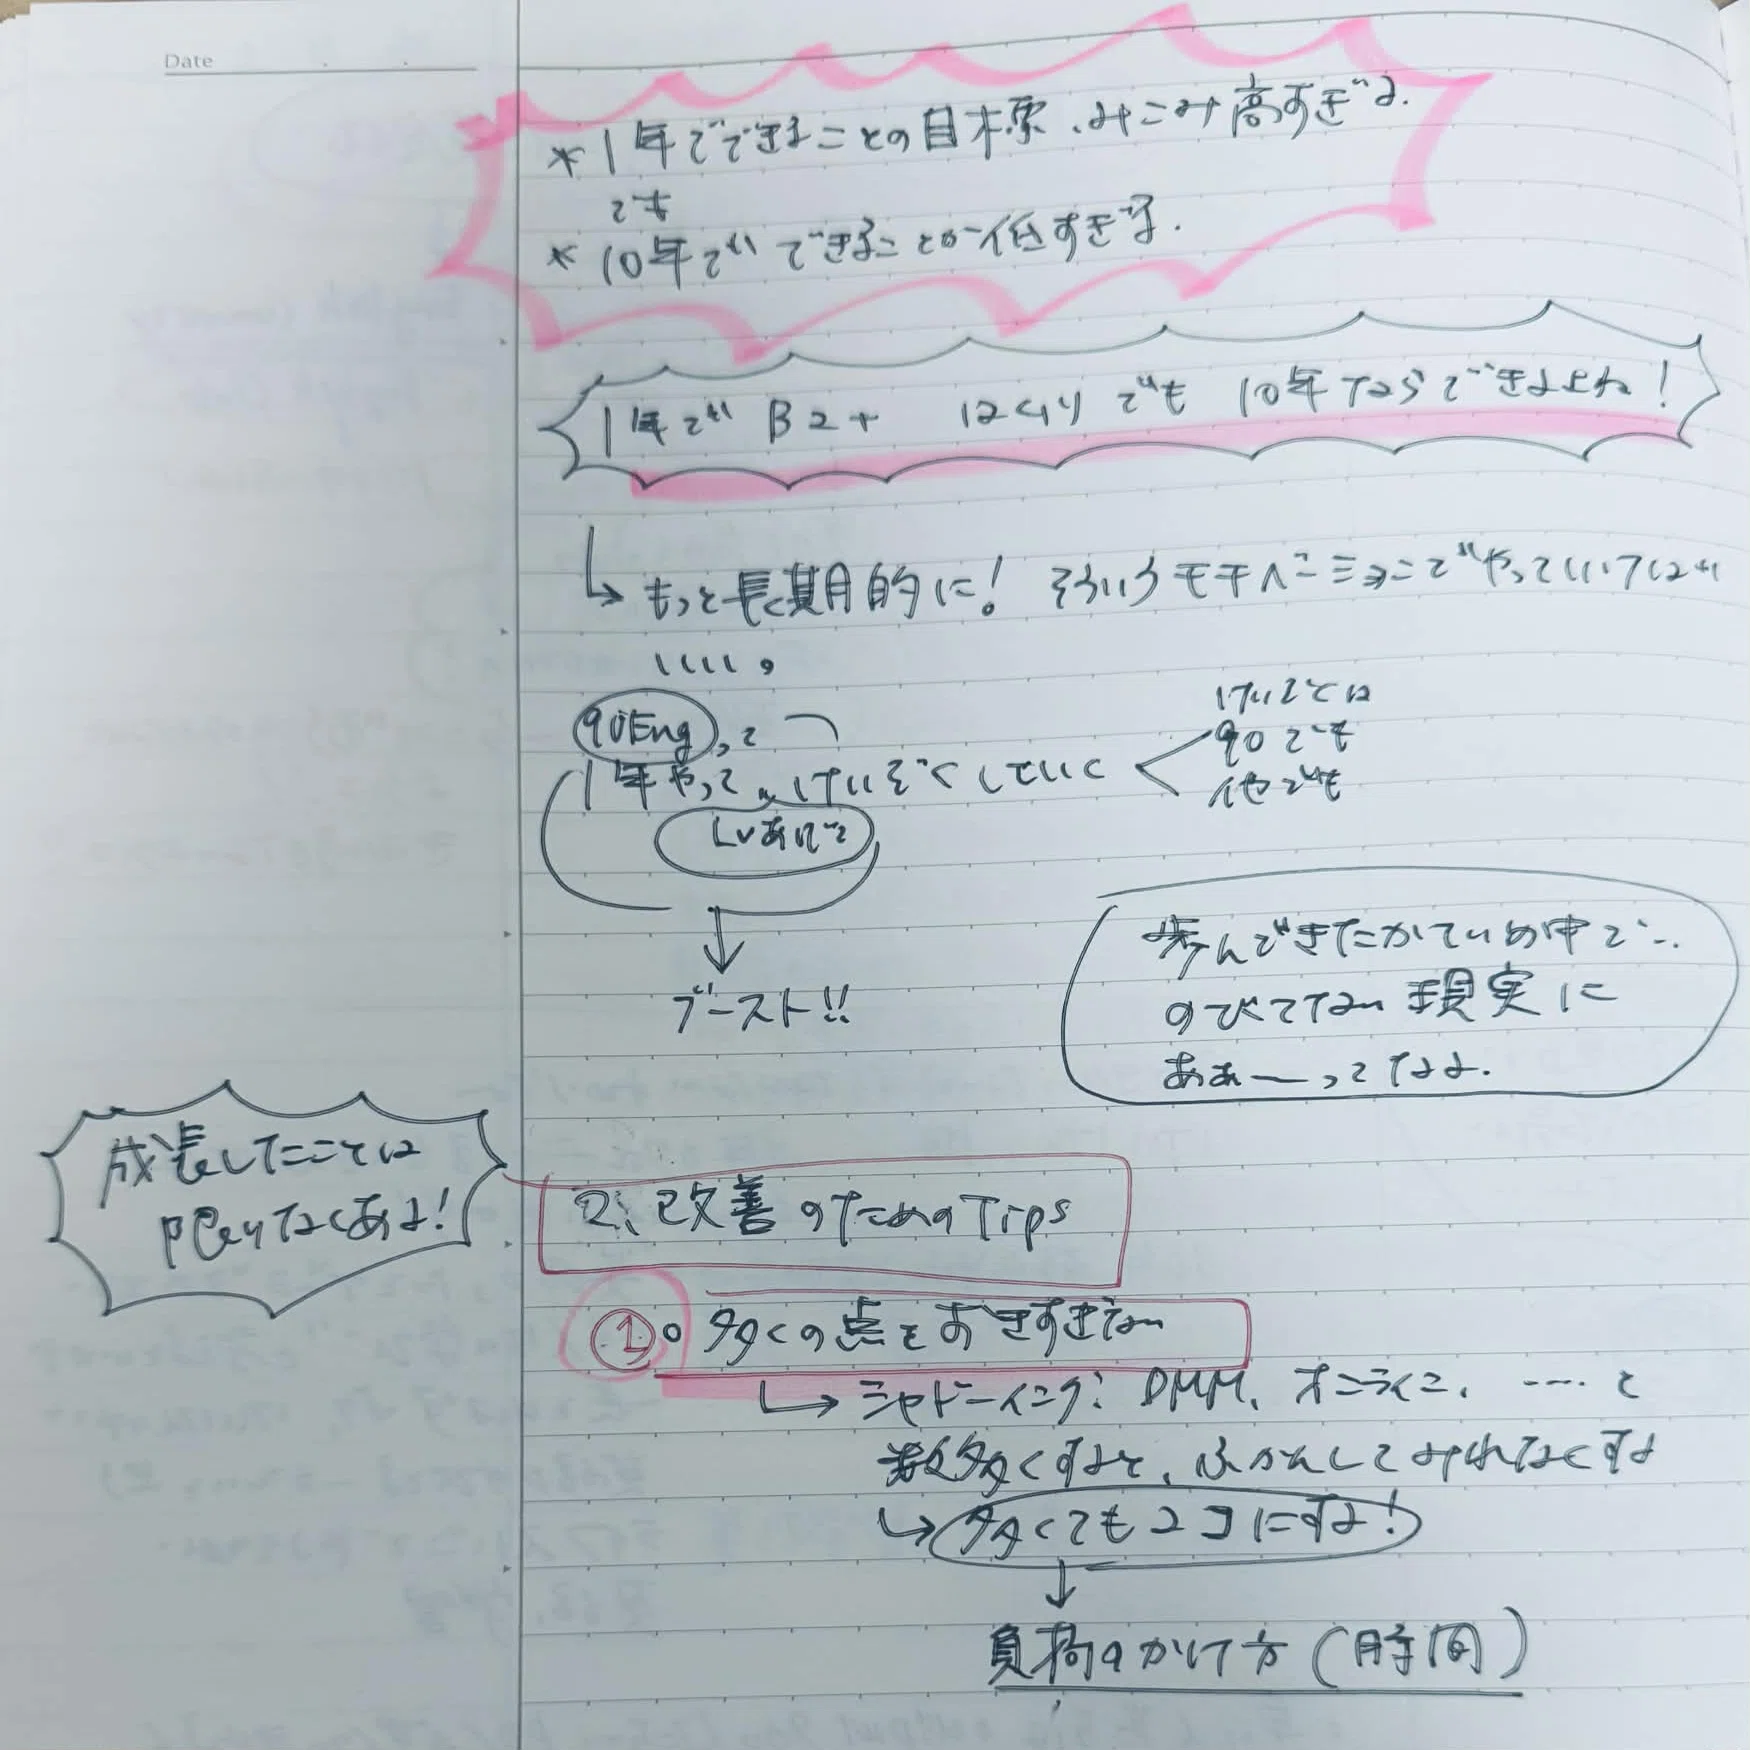 Date
* 1年でできることの目標、みこみ高すぎる.
でも
* 10年で できることが低すぎる.
1年で B2+ はムリ でも 10年ならできるよね!
↳ もっと長期的に! そういうモチベーションでやっていければ
いい。
90Eng って
1年やって、けいぞくしていく
けいぞくは
90でも
他でも
Lvあげて
↓
ブースト!!
歩んできたかていの中で..
のびてない現実に
ああーってなる.
成長したことは
限りなくある!
2. 改善のためのTips
① 多くの点をおきすぎない
↳ シャドーイング、DMM、オンライン、....と
数多くすると、ふかんしてみれなくする
↳ 多くても2コにする!
↓
負荷のかけ方(時間)